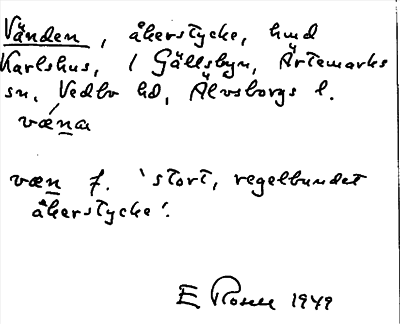 Vänden, åkerstycke, hmd
Karlshus, i Gällsbyn, Ärtemarks
sn, Vedbo hd, Älvsborgs l.
vǽna
væn f. 'stort, regelbundet
åkerstycke'.
E Rosell 1949